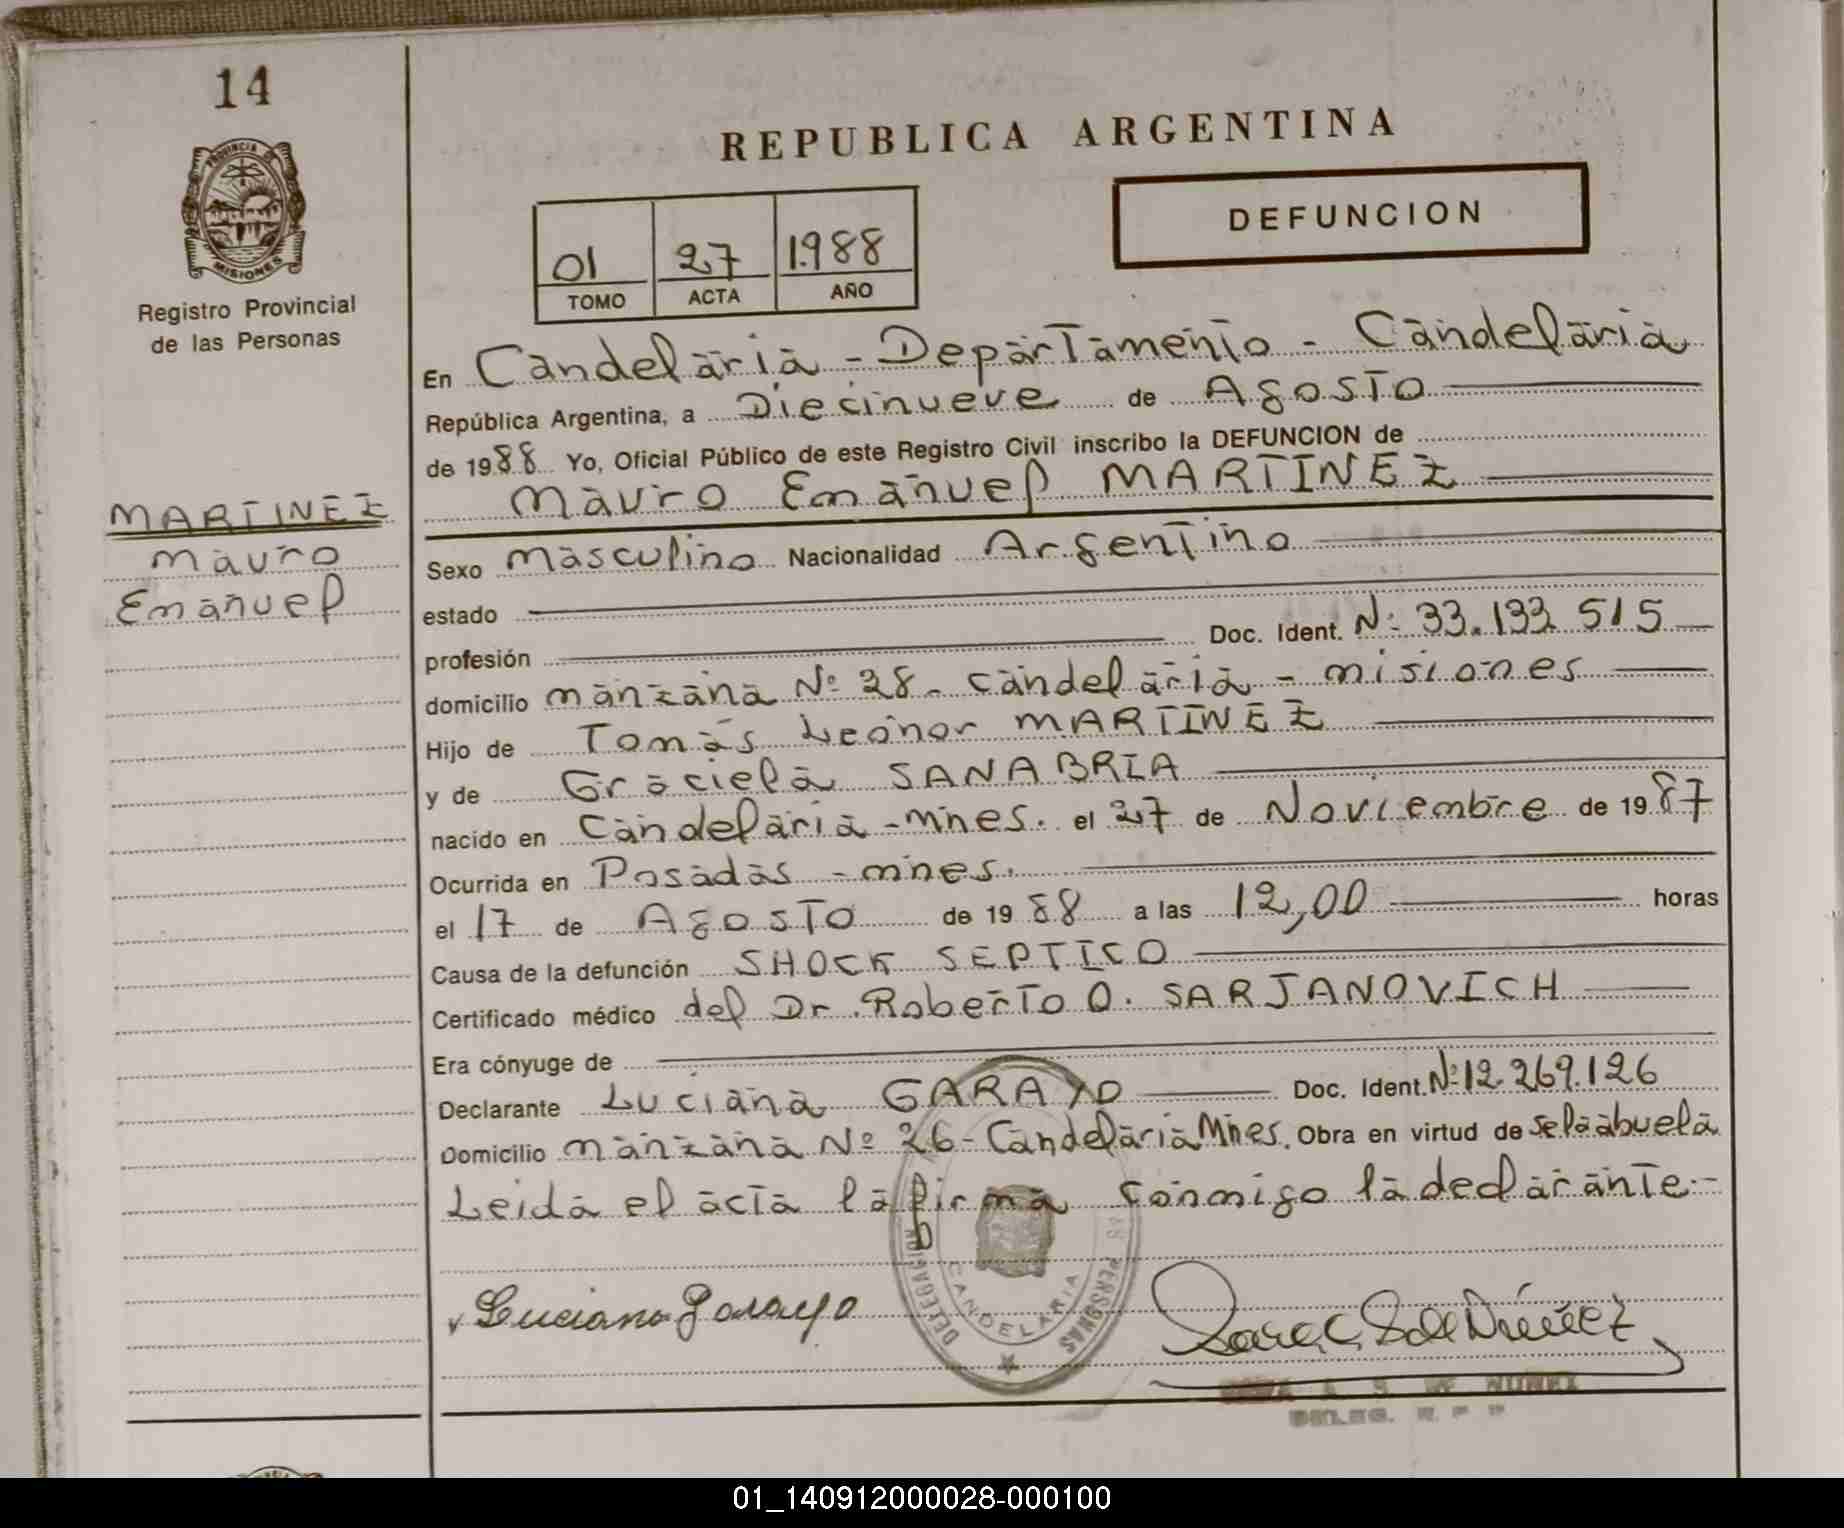 14
PROVINCIA DE
MISIONES
Registro Provincial
de las Personas
MARTINEZ
Mauro
Emanuel
REPUBLICA ARGENTINA
01 27 1.988
TOMO ACTA AÑO
DEFUNCION
En Candelaria - Departamento - Candelaria
República Argentina, a Diecinueve de Agosto
de 1988 Yo, Oficial Público de este Registro Civil inscribo la DEFUNCION de
Mauro Emanuel MARTINEZ
Sexo Masculino Nacionalidad Argentino
estado
profesión Doc. Ident. Nº 33.133.515
domicilio Manzana Nº 28 - Candelaria - Misiones
Hijo de Tomás Leonor MARTINEZ
y de Graciela SANABRIA
nacido en Candelaria - Mnes. el 27 de Noviembre de 1987
Ocurrida en Posadas - Mnes.
el 17 de Agosto de 1988 a las 12,00 horas
Causa de la defunción SHOCK SEPTICO
Certificado médico del Dr. Roberto O. SARJANOVICH
Era cónyuge de
Declarante Luciana GARAYO Doc. Ident. Nº 12.269.126
Domicilio Manzana Nº 26 - Candelaria Mnes. Obra en virtud de ser la abuela
Leida el acta la firma conmigo la declarante.-
Luciana Garayo
DELEGACION PERSONAS
CANDELARIA
S. DE NUÑEZ
DELEG. R. P. P.
01_140912000028-000100